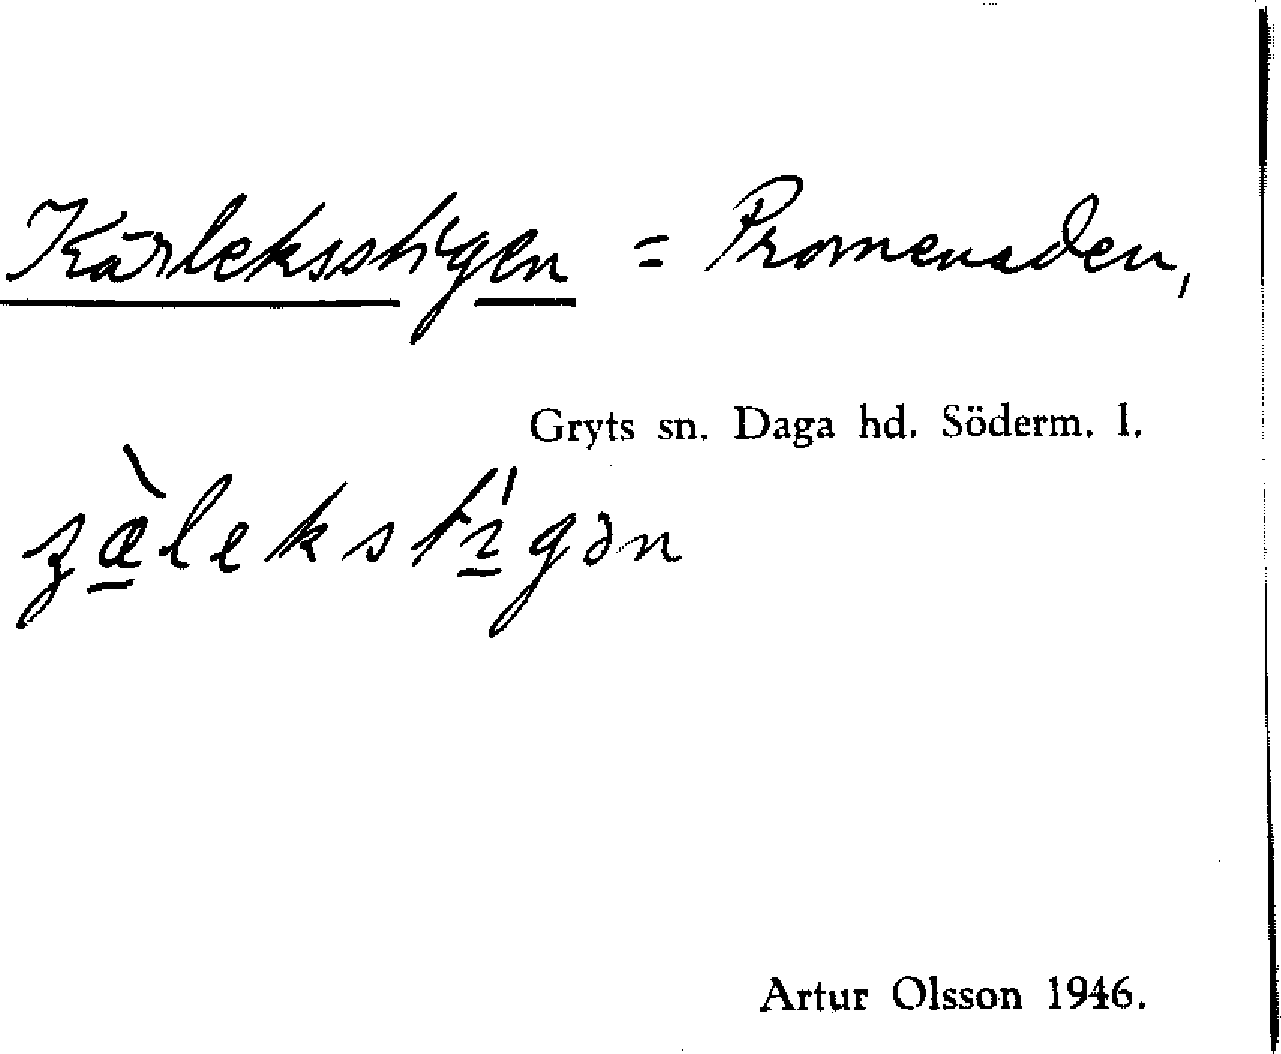 Kärleksstigen = Promenaden,
Gryts sn. Daga hd. Söderm. l.
ʒæ̀lekstígən
Artur Olsson 1946.